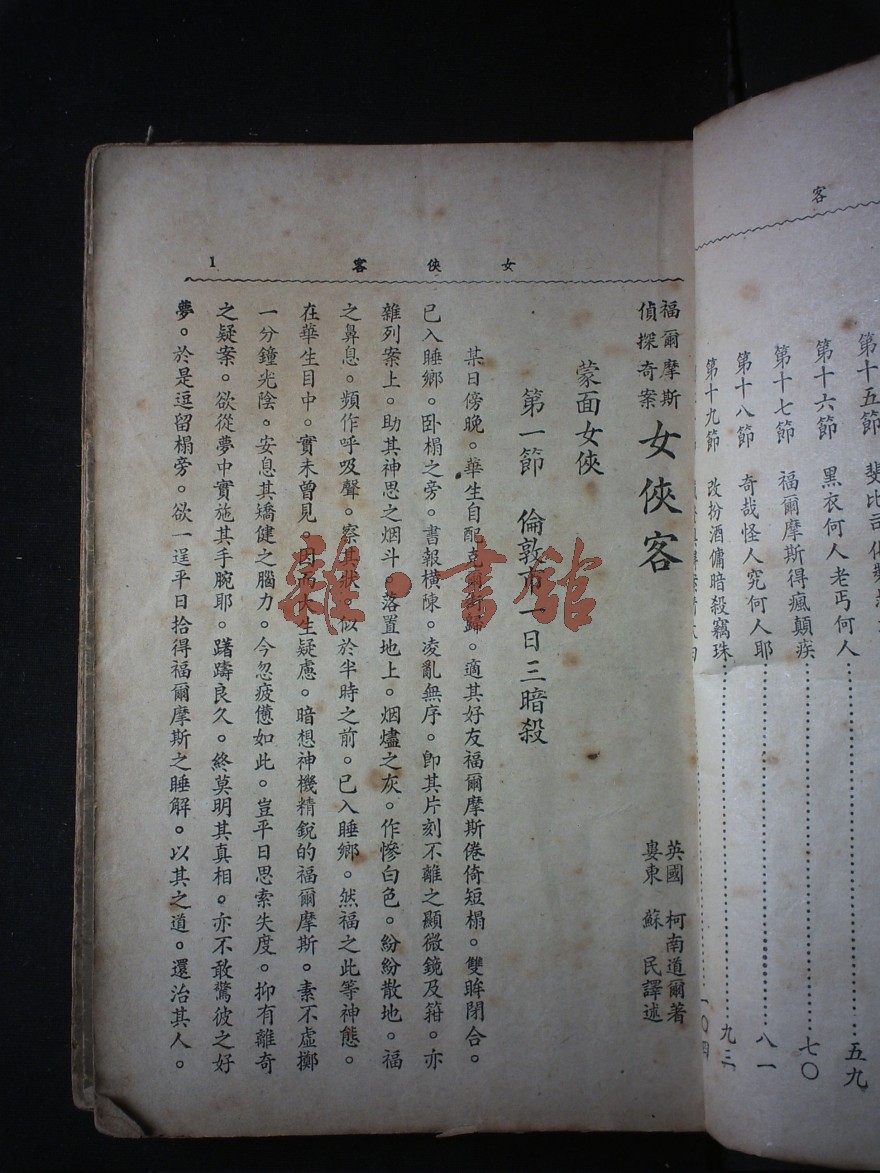 客
第十五節　斐比司
第十六節　黑衣何人老丐何人……五九
第十七節　福爾摩斯得瘋顛疾……七〇
第十八節　奇哉怪人究何人耶……八一
第十九節　改扮酒傭暗殺竊珠……九三
一〇四
女俠客
1
福爾摩斯
偵探奇案
女俠客
英國　柯南道爾著
婁東　蘇民譯述
蒙面女俠
第一節　倫敦市一日三暗殺
某日傍晚。華生自配克爾街歸。適其好友福爾摩斯倦倚短榻。雙眸閉合。
已入睡鄉。臥榻之旁。書報橫陳。凌亂無序。卽其片刻不離之顯微鏡及箝。亦
雜列案上。助其神思之烟斗。落置地上。烟燼之灰。作慘白色。紛紛散地。福
之鼻息。頻作呼吸聲。察其狀。似於半時之前。已入睡鄉。然福之此等神態。
在華生目中。實未曾見。因而大生疑慮。暗想神機精銳的福爾摩斯。素不虛擲
一分鐘光陰。安息其矯健之腦力。今忽疲憊如此。豈平日思索失度。抑有離奇
之疑案。欲從夢中實施其手腕耶。躊躇良久。終莫明其真相。亦不敢驚彼之好
夢。於是逗留榻旁。欲一逞平日拾得福爾摩斯之睡解。以其之道。還治其人。
雜·書館